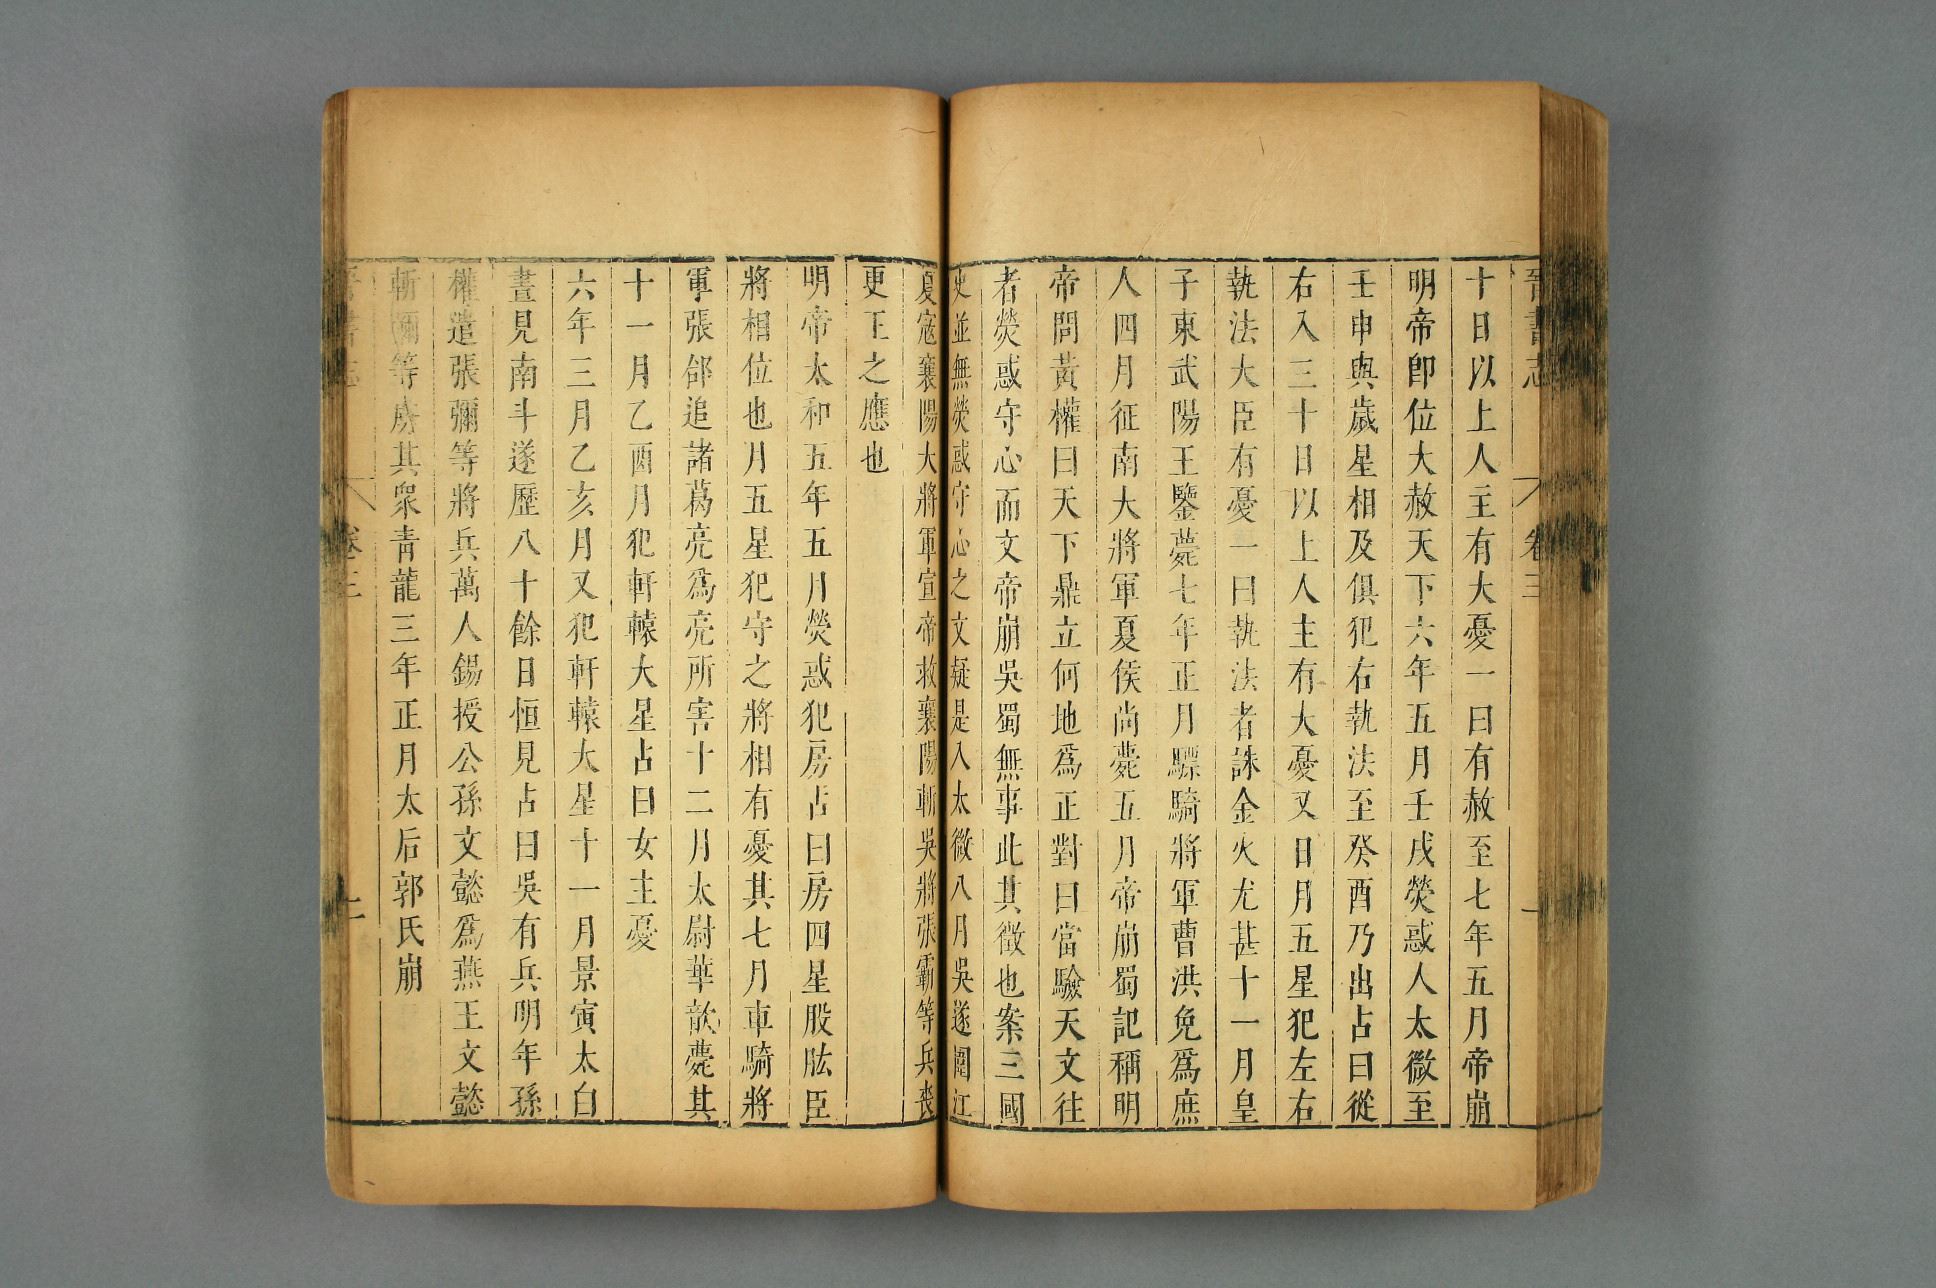 晉書志 卷三
十日以上人主有大憂一曰有赦至七年五月帝崩
明帝卽位大赦天下六年五月壬戌熒惑入太微至
壬申與歲星相及俱犯右執法至癸酉乃出占曰從
右入三十日以上人主有大憂又日月五星犯左右
執法大臣有憂一曰執法者誅金火尤甚十一月皇
子東武陽王鑒薨七年正月驃騎將軍曹洪免爲庶
人四月征南大將軍夏侯尚薨五月帝崩蜀記稱明
帝問黃權曰天下鼎立何地爲正對曰當驗天文往
者熒惑守心而文帝崩吳蜀無事此其徵也案三國
史並無熒惑守心之文疑是入太微八月吳遂圍江
夏寇襄陽大將軍宣帝救襄陽斬吳將張霸等兵喪
更王之應也
明帝太和五年五月熒惑犯房占曰房四星股肱臣
將相位也月五星犯守之將相有憂其七月車騎將
軍張郃追諸葛亮爲亮所害十二月太尉華歆薨其
十一月乙酉月犯軒轅大星占曰女主憂
六年三月乙亥月又犯軒轅大星十一月景寅太白
晝見南斗遂歷八十餘日恒見占曰吳有兵明年孫
權遣張彌等將兵萬人錫授公孫文懿爲燕王文懿
斬彌等虜其衆青龍三年正月太后郭氏崩
晉書志 卷三